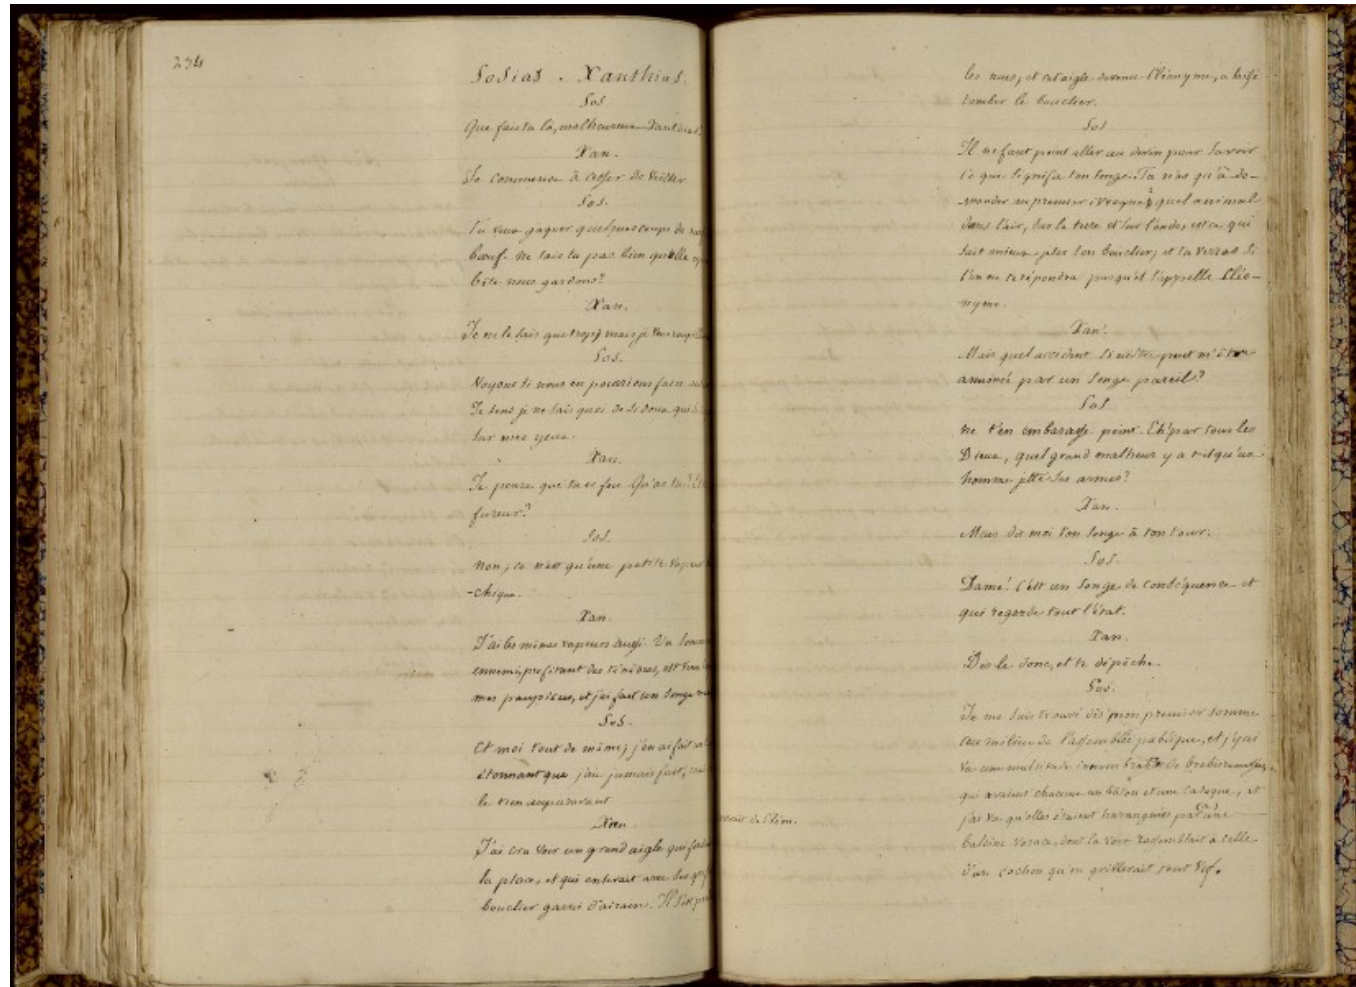 234
Sosias. Xanthias.
Sos.
Que fais tu là, malheureux Xanthias?
Xan.
Je commence à cesser de veiller
Sos.
Tu veux gagner quelques coups de
bœuf. Ne sais tu pas bien quelle
bête nous gardons?
Xan.
Je ne le sais que trop; mais je veux
Sos.
Voyons si nous en pourrions faire
Je sens je ne sais quoi de si doux qui
sur mes yeux.
Xan.
Je pense que tu es fou. Qu'as tu?
fureur?
Sos.
Non, ce n'est qu'une petite vapeur
-chique.
Xan.
J'ai les mêmes vapeurs aussi. Un
ennemi, profitant des ténèbres, est venu
mes paupières, et j'ai fait un songe
Sos.
Et moi tout de même; j'en ai fait
étonnant que j'aie jamais fait;
le tien auparavant
Xan.
J'ai cru voir un grand aigle qui
la place, et qui enlevait avec ses
bouclier garni d'airain. Il s'est
les nues, et cet aigle devenu Cléonyme, a laissé
tomber le bouclier.
Sos.
Il ne faut point aller au devin pour savoir
ce que signifie ton songe. Tu n'as qu'à de-
-mander au premier ivrogne, quel animal
dans l'air, sur la terre et sur l'onde, est ce qui
sait mieux jeter son bouclier; et tu verras si
l'on ne te répondra pas qu'il s'appelle Cléo-
nyme.
Xan.
Mais quel accident sinistre peut m'être
annoncé par un songe pareil?
Sos.
ne t'en embarasse point. Eh! par tous les
Dieux, quel grand malheur y a t'il qu'un
homme jette ses armes?
Xan.
Mais dis moi ton songe à ton tour.
Sos.
Dame! C'est un songe de conséquence et
qui regarde tout l'état.
Xan.
Dis le donc, et te dépêche.
Sos.
Je me suis trouvé dès mon premier somme
au milieu de l'assemblée publique, et j'y ai
vu une multitude innombrable de brebis
qui avaient chacune un bâton et une casaque, et
j'ai vu qu'elles étaient haranguées par une
baleine vorace, dont la voix ressemblait à celle
d'un cochon qu'on grillerait tout vif.